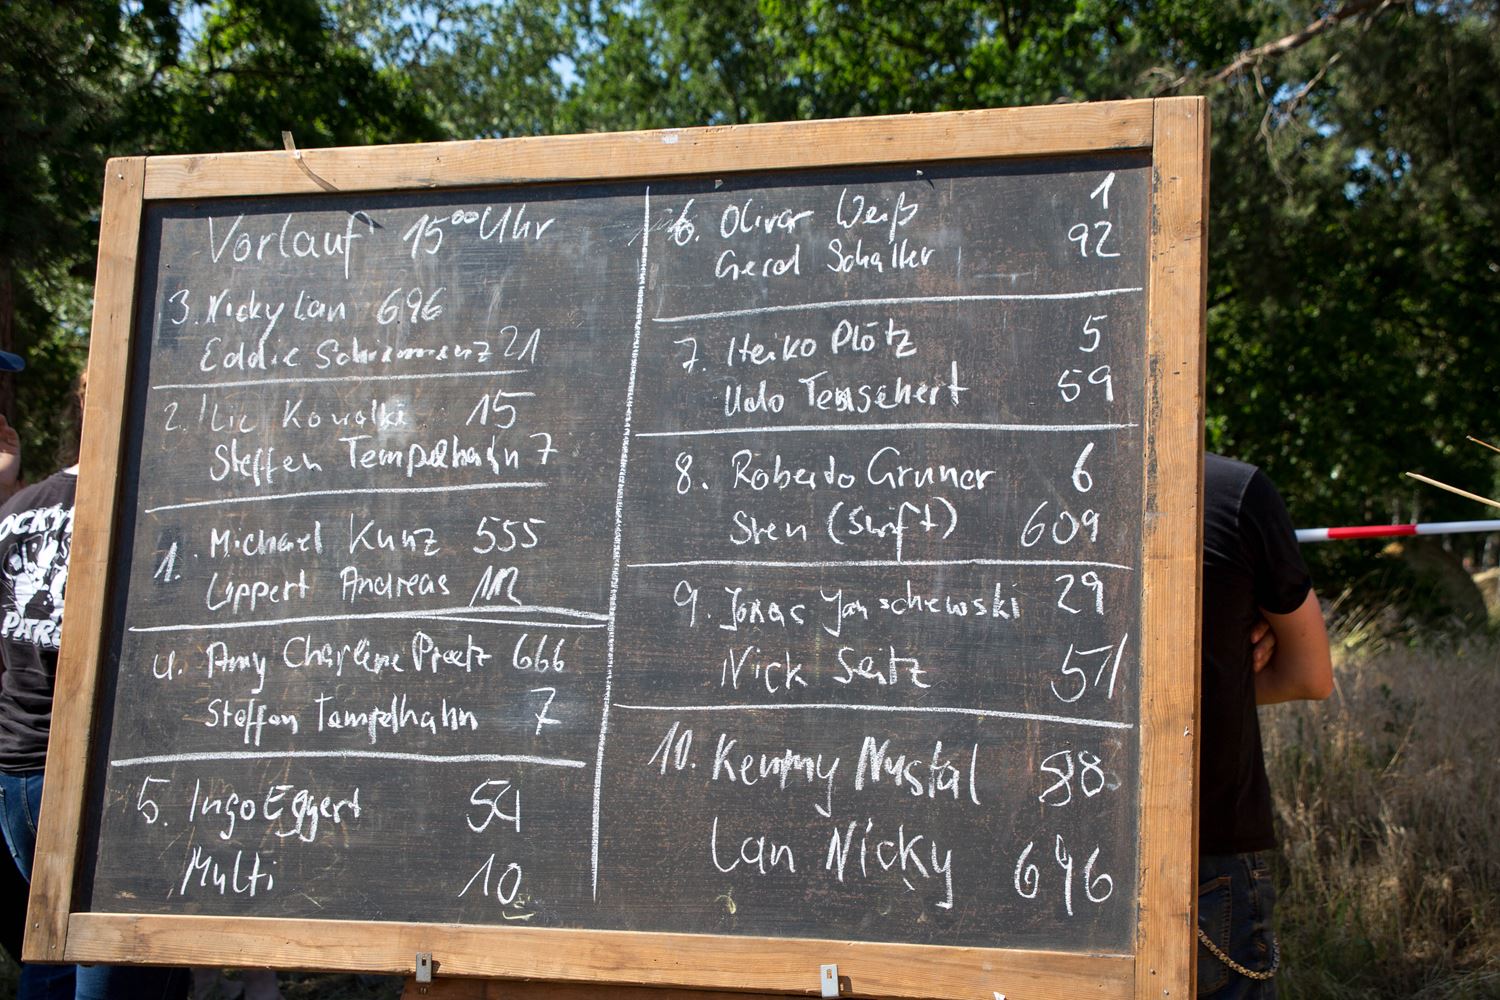 Vorlauf 15⁰⁰ Uhr
3. Nicky Lan 696
Eddie Schimmenz 21
2. Kowalki 15
Steffen Tempelhahn 7
1. Michael Kunz 555
Lippert Andreas 112
4. Amy Charlene Preetz 666
Steffen Tempelhahn 7
5. Ingo Eggert 54
Multi 10
6. Olivar Weiß 1
Gerad Schaller 92
7. Heiko Plötz 5
Udo Temschert 59
8. Roberto Gruner 6
Sven (Swift) 609
9. Jonas Januschewski 29
Nick Seitz 51
10. Kenny Nystal 88
Lan Nicky 696